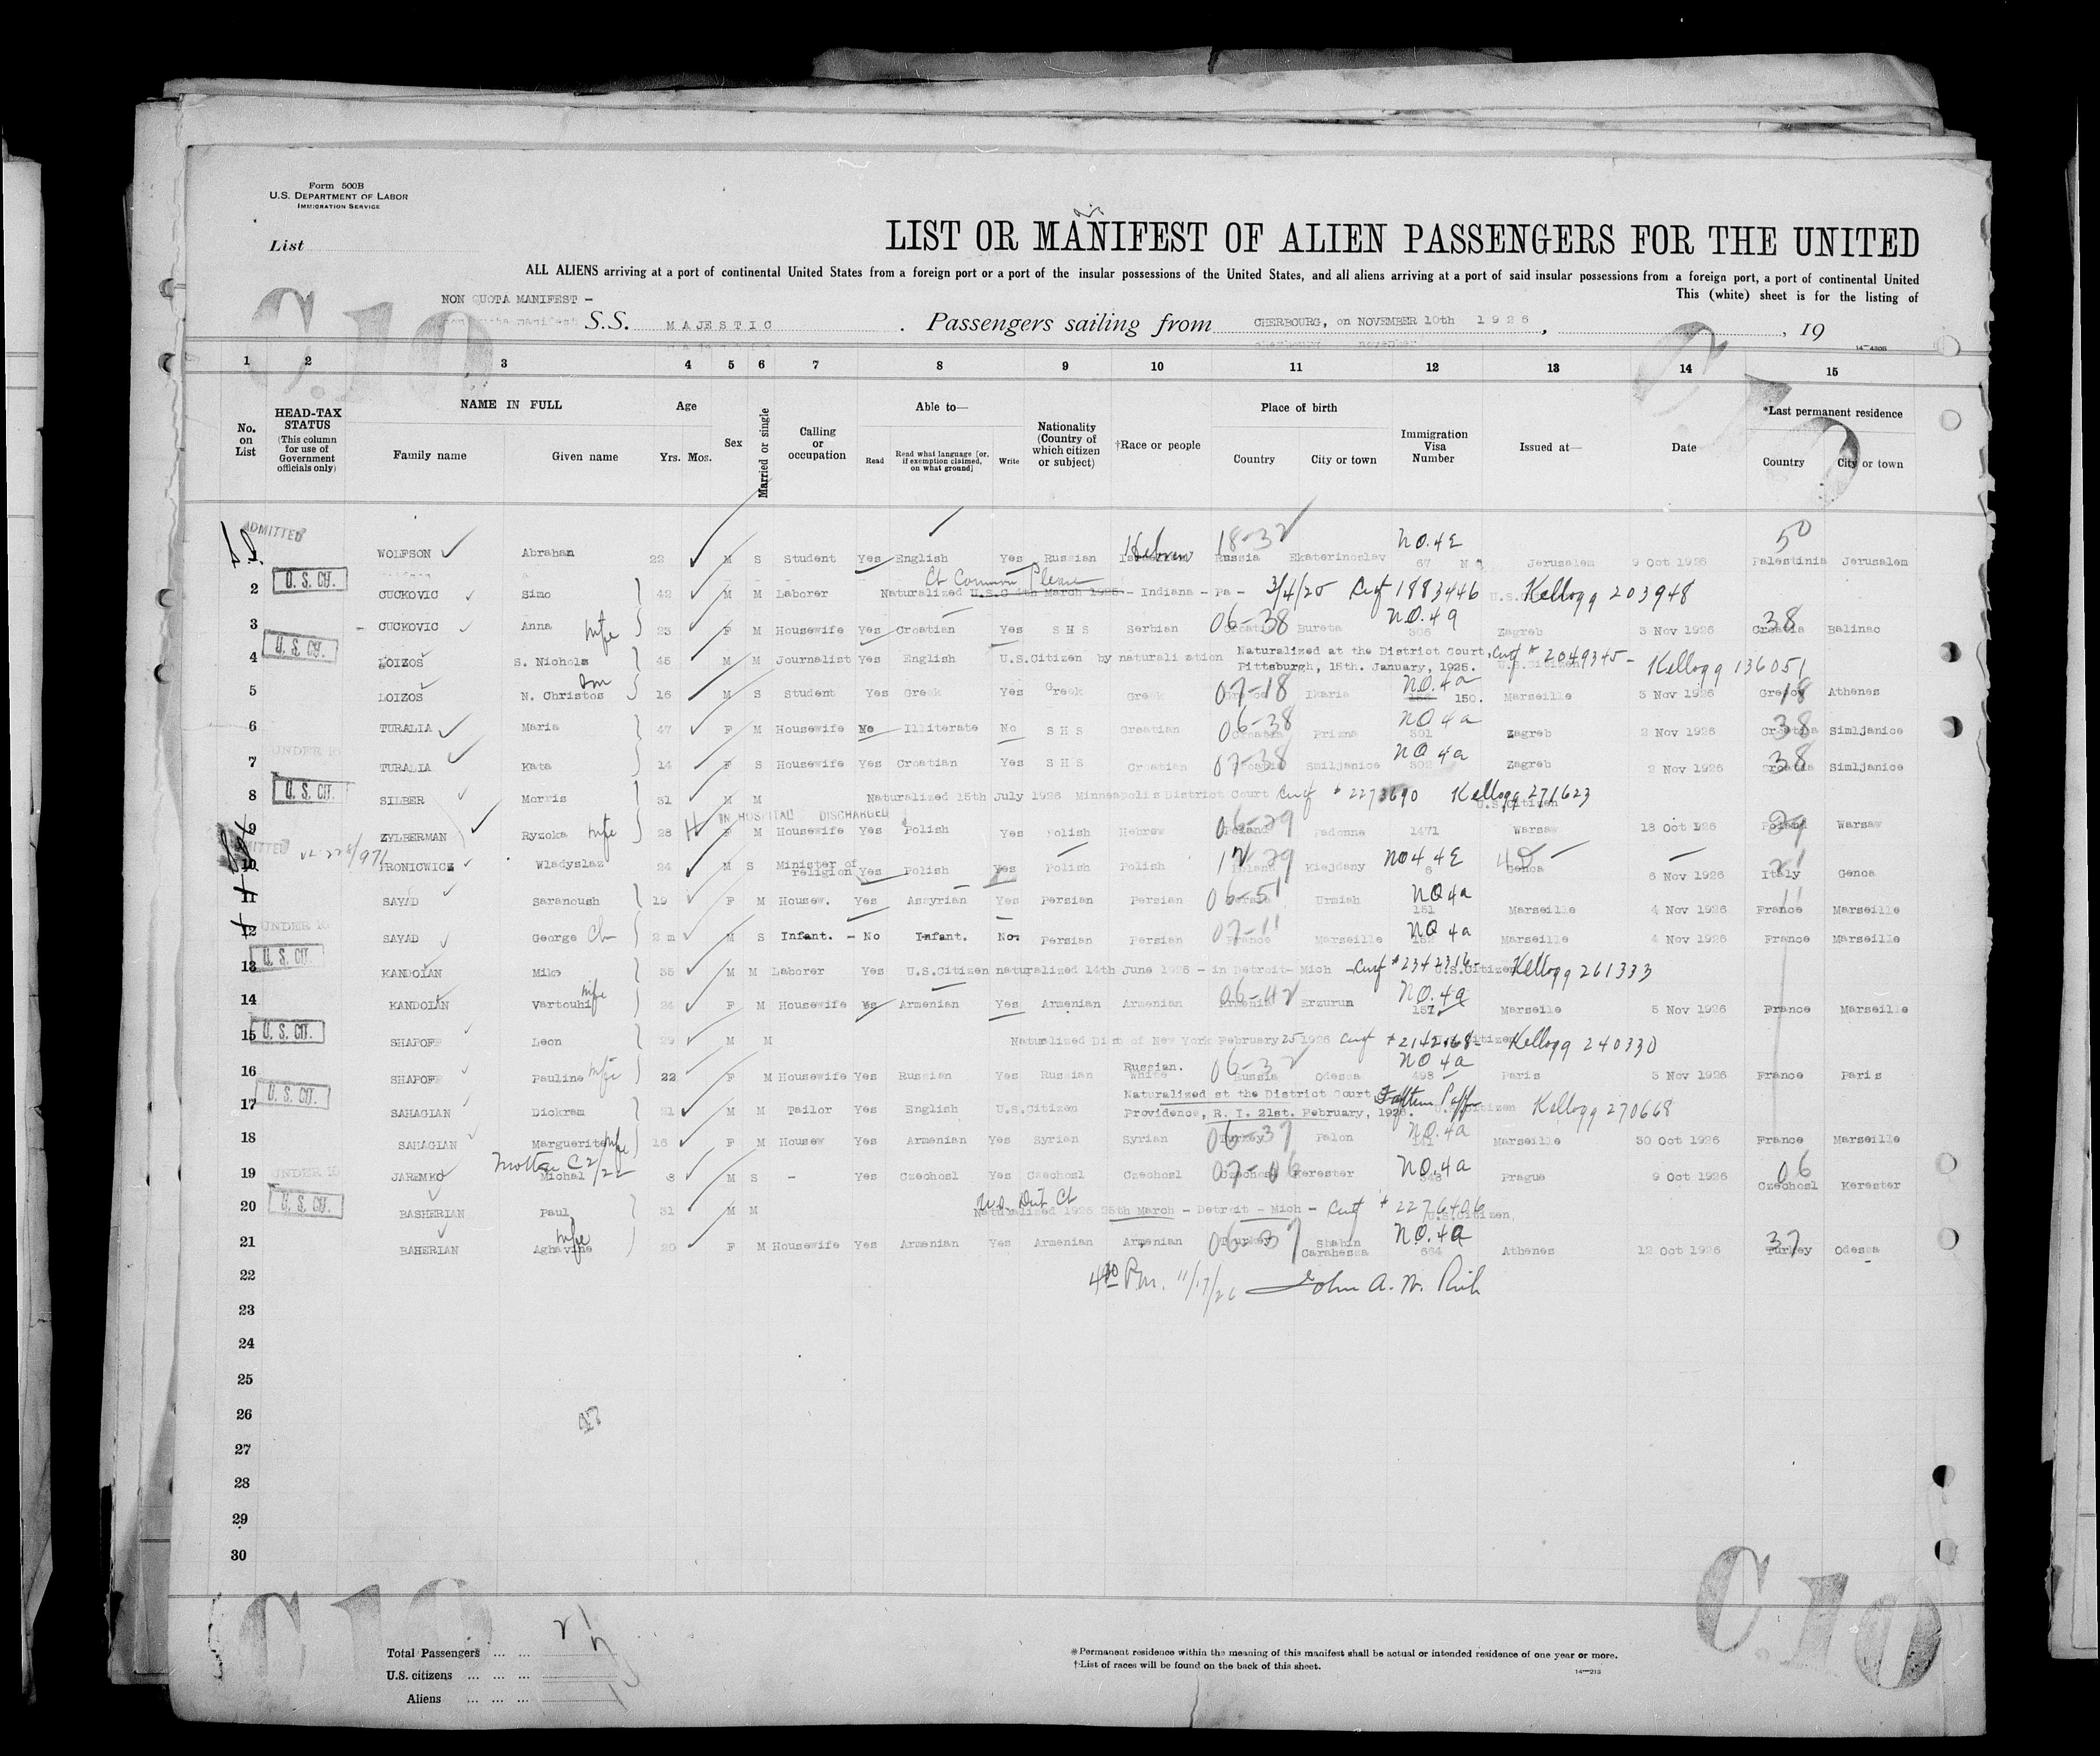 Form 500B
U.S. DEPARTMENT OF LABOR
IMMIGRATION SERVICE
List
LIST OR MANIFEST OF ALIEN PASSENGERS FOR THE UNITED
ALL ALIENS arriving at a port of continental United States from a foreign port or a port of the insular possessions of the United States, and all aliens arriving at a port of said insular possessions from a foreign port, a port of continental United
This (white) sheet is for the listing of
NON QUOTA MANIFEST -
S.S. MAJESTIC . Passengers sailing from CHERBOURG, on NOVEMBER 10th 1926, , 19
C.10
1 2 3 4 5 6 7 8 9 10 11 12 13 14 15
No. on List HEAD-TAX STATUS (This column for use of Government officials only) NAME IN FULL Family name Given name Age Yrs. Mos. Sex Married or single Calling or occupation Able to— Read Read what language [or, if exemption claimed, on what ground] Write Nationality (Country of which citizen or subject) †Race or people Place of birth Country City or town Immigration Visa Number Issued at— Date *Last permanent residence Country City or town
ADMITTED
1 WOLFSON Abrahan 22 M S Student Yes English Yes Russian Hebrew 18-32 Russia Ekaterinoslav NO.4E 67 Jerusalem 9 Oct 1926 50 Palestinia Jerusalem
2 U.S. CIT. CUCKOVIC Simo 42 M M Laborer Ct Common Pleas Naturalized U.S.C 4th March 1925 - Indiana - Pa - 3/4/25 Cerf 1883446 Kellogg 203948
3 CUCKOVIC Anna wife 23 F M Housewife Yes Croatian Yes S H S Serbian 06-38 Croatia Bureta NO.4a 306 Zagreb 3 Nov 1926 38 Croatia Balinac
4 U.S. CIT. LOIZOS S. Nichols 45 M M Journalist Yes English U.S.Citizen by naturalization Naturalized at the District Court, Pittsburgh, 15th. January, 1925. Cerf # 2049345 - Kellogg 136051
5 LOIZOS N. Christos son 16 M S Student Yes Greek Yes Greek Greek 07-18 Ikaria NO.4a 150. Marseille 3 Nov 1926 18 Greece Athenes
6 TURALIA Maria 47 F M Housewife No Illiterate No S H S Croatian 06-38 Croatia Prizna NO 4a 301 Zagreb 2 Nov 1926 38 Croatia Simljanice
7 UNDER 16 TURALIA Kata 14 F S Housewife Yes Croatian Yes S H S Croatian 07-38 Croatia Smiljanice NO 4a 302 Zagreb 2 Nov 1926 38 Croatia Simljanice
8 U.S. CIT. SILBER Morris 31 M M Naturalized 15th July 1926 Minneapolis District Court Cerf # 2273690 Kellogg 271623 U.S.Citizen
IN HOSPITAL DISCHARGED
9 ZYLBERMAN Ryzoka wife 28 F M Housewife Yes Polish Yes Polish Hebrew 06-29 Poland Radonna 1471 Warsaw 18 Oct 1926 29 Poland Warsaw
10 HRONICWICZ Wladyslaz 24 M S Minister of religion Yes Polish Yes Polish Polish 12-29 Poland Kiejdany NO 4 4E 6 Genoa 6 Nov 1926 21 Italy Genoa
11 SAYAD Saranoush 19 F M Housew. Yes Assyrian Yes Persian Persian 06-51 Persia Urmiah NO 4a 151 Marseille 4 Nov 1926 11 France Marseille
12 UNDER 16 SAYAD George Ch 2 m M S Infant. - No Infant. No. Persian Persian 07-11 France Marseille NO 4a 152 Marseille 4 Nov 1926 France Marseille
13 U.S. CIT. KANDOIAN Miko 35 M M Laborer Yes U.S.Citizen naturalized 14th June 1926 - in Detroit- Mich - Cerf # 2342316- U.S.Citizen Kellogg 261333
14 KANDOIAN Vartouhi wife 24 F M Housewife Yes Armenian Yes Armenian Armenian 06-42 Armenia Erzurun NO.4a 157 Marseile 5 Nov 1926 France Marseille
15 U.S. CIT. SHAPOFF Leon 29 M M Naturalized Dist of New York February 25 1926 Cerf # 2142168- Citizen Kellogg 240330
16 SHAPOFF Pauline wife 22 F M Housewife Yes Russian Yes Russian Russian. White 06-32 Russia Odessa NO 4a 498 Paris 5 Nov 1926 France Paris
17 U.S. CIT. SAHAGIAN Dickram 31 M M Tailor Yes English U.S.Citizen Naturalized at the District Court Providence, R. I. 21st. February, 1926. U.S.Citizen Kellogg 270668
18 SAHAGIAN Marguerite wife 16 F M Housew Yes Armenian Yes Syrian Syrian 06-37 Turkey Palon NO.4a Marseille 30 Oct 1926 France Marseille
19 UNDER 16 JAREMKO Michal 8 M S - Yes Czechosl Yes Czechosl Czechosl 07-06 Czechosl Kerester NO.4a 348 Prague 9 Oct 1926 06 Czechosl Kerester
20 U.S. CIT. BASHERIAN Paul 31 M M U.S. Dist Ct Naturalized 1926 25th March - Detroit - Mich - Cerf # 2276406 U.S.Citizen,
21 BAHERIAN Aghavine wife 20 F M Housewife Yes Armenian Yes Armenian Armenian 06-37 Turkey Shabin Carahessa NO.4a 664 Athenes 12 Oct 1926 37 Turkey Odessa
22 4 30 P.m. 11/17/26 John A. W.
23
24
25
26
27
28
29
30
C 10
C.10
Total Passengers ... ... 21
U.S. citizens ... ... ...
Aliens ... ... ...
*Permanent residence within the meaning of this manifest shall be actual or intended residence of one year or more.
†List of races will be found on the back of this sheet.
14—213